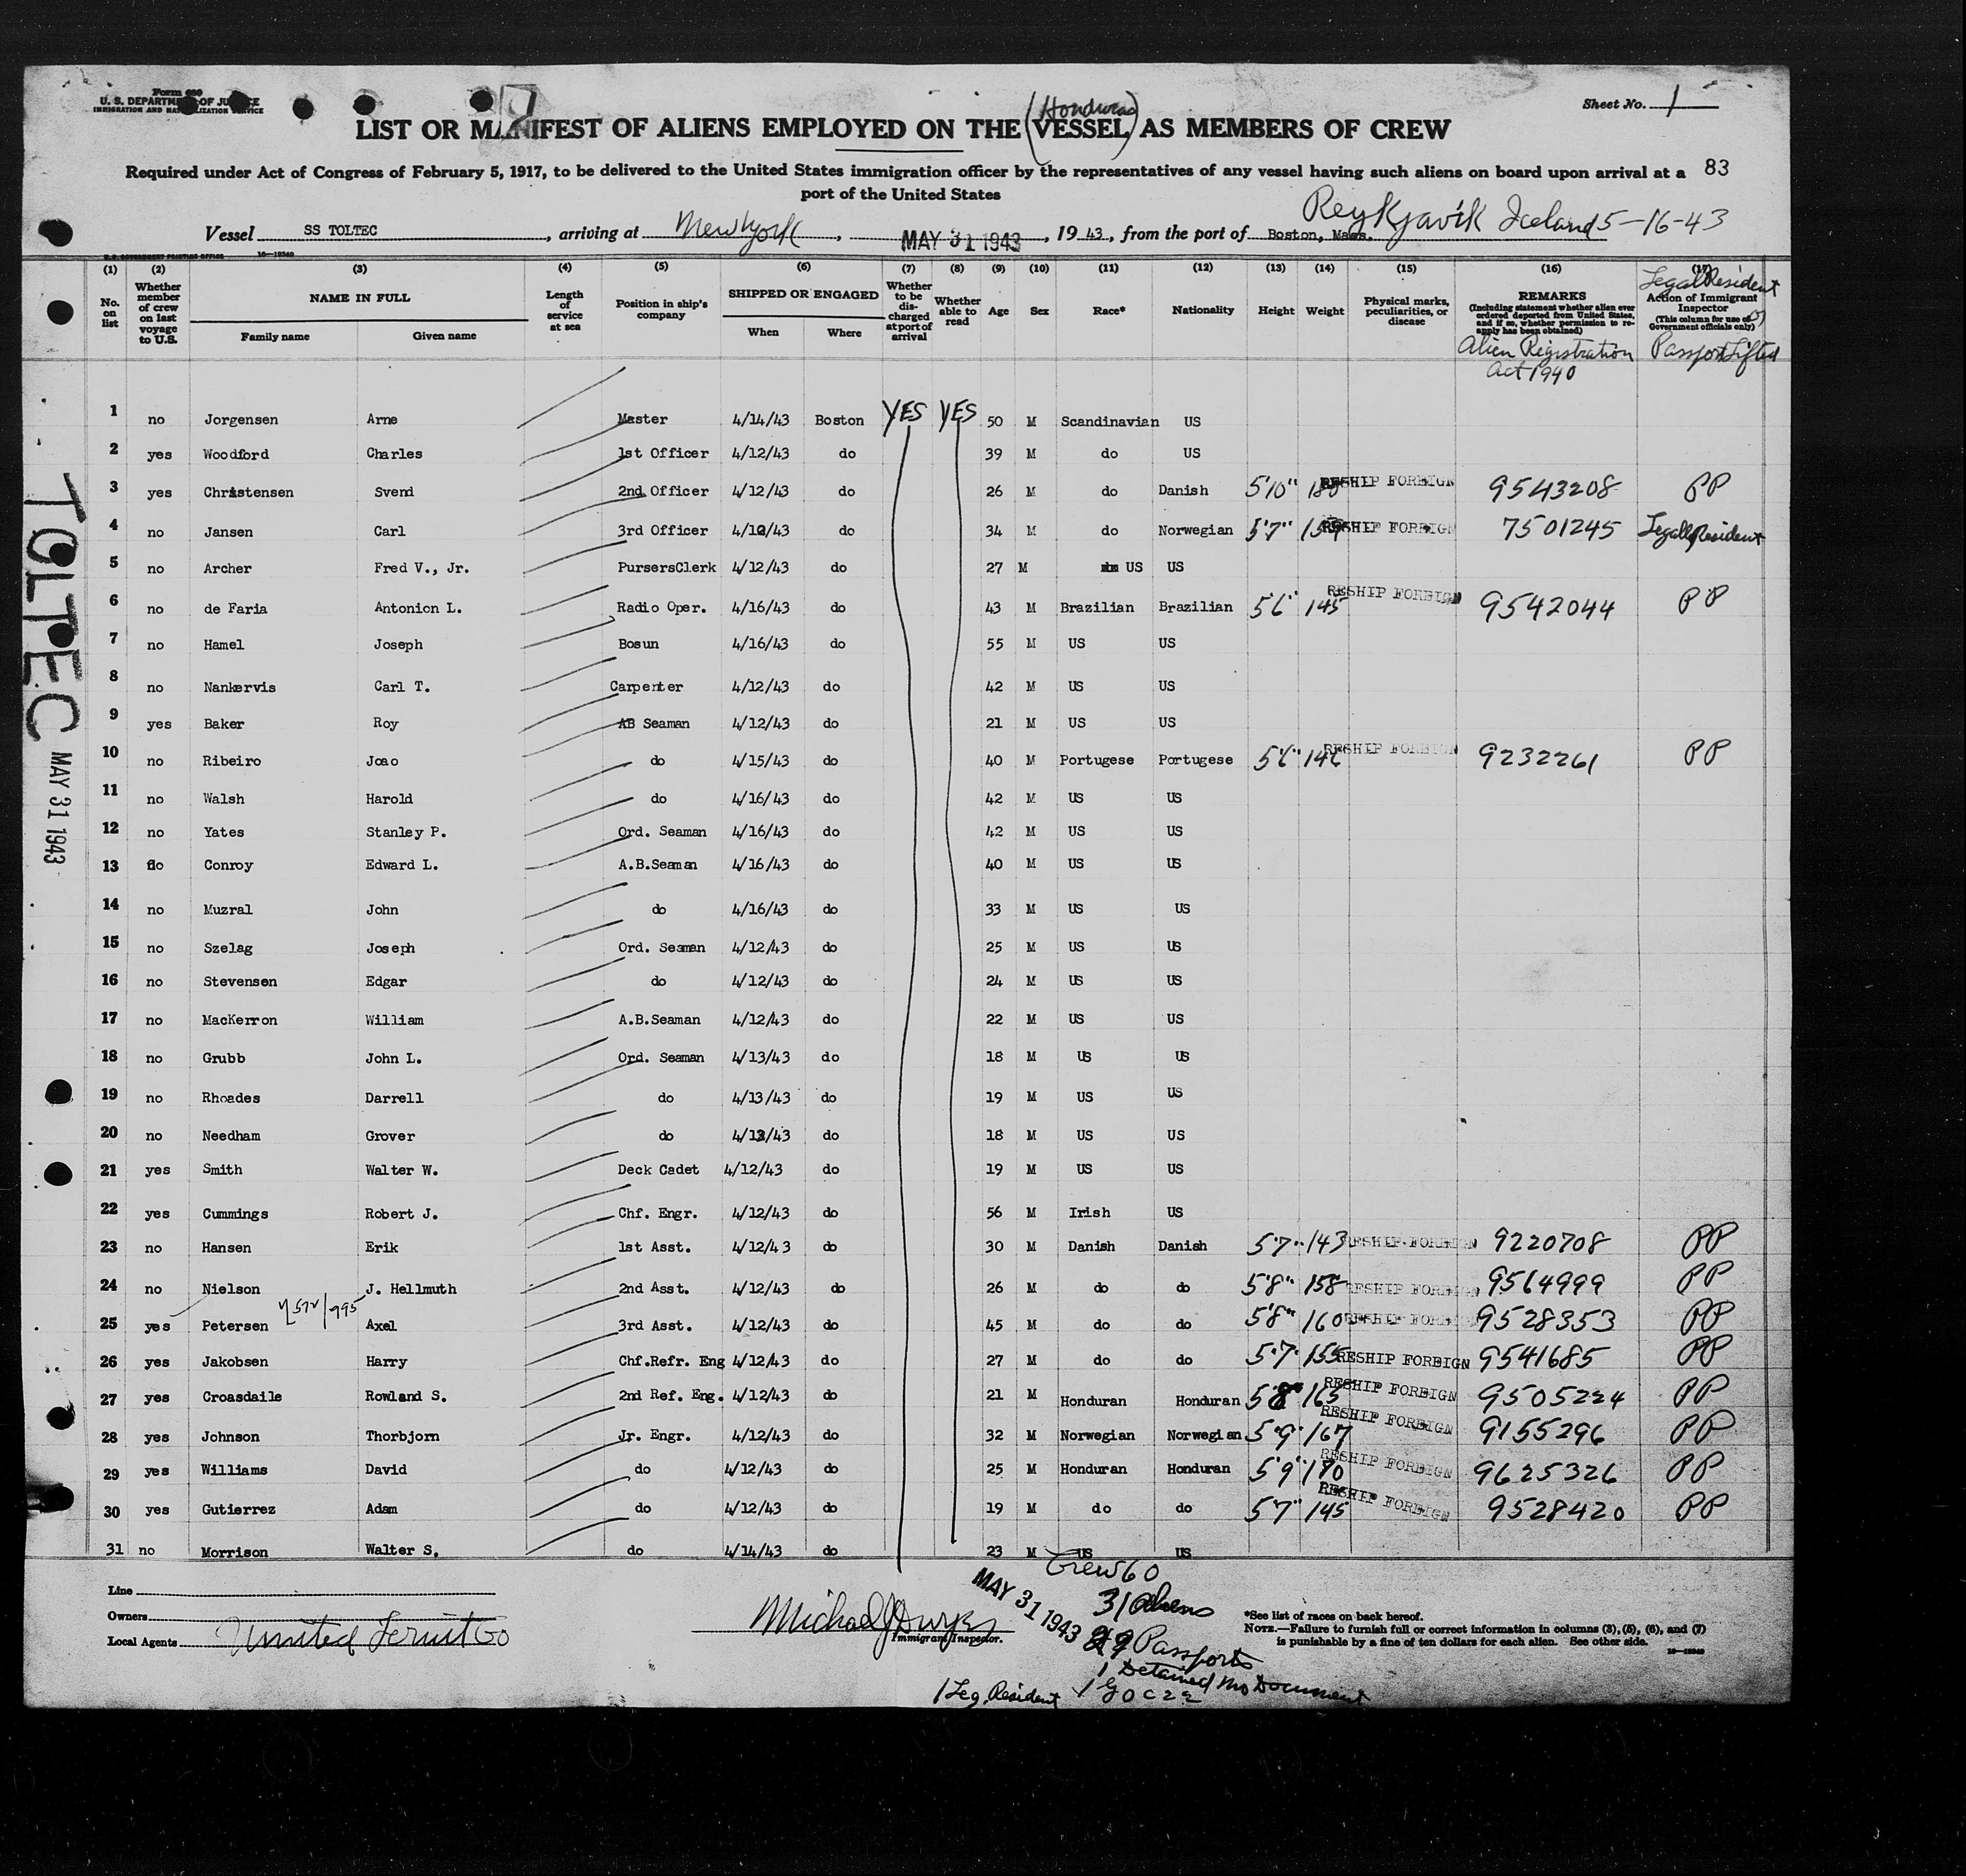 Form 680
U. S. DEPARTMENT OF JUSTICE
IMMIGRATION AND NATURALIZATION SERVICE
Sheet No. 1
(Honduras)
LIST OR MANIFEST OF ALIENS EMPLOYED ON THE VESSEL AS MEMBERS OF CREW
Required under Act of Congress of February 5, 1917, to be delivered to the United States immigration officer by the representatives of any vessel having such aliens on board upon arrival at a 83
port of the United States
Vessel SS TOLTEC, arriving at New York, MAY 31 1943, 19 43, from the port of Boston, Mass. Reykjavik Iceland 5-16-43
U.S. GOVERNMENT PRINTING OFFICE 16-19340
(1) (2) (3) (4) (5) (6) (7) (8) (9) (10) (11) (12) (13) (14) (15) (16) (17)
No. on list
Whether member of crew on last voyage to U.S.
NAME IN FULL
Family name Given name
Length of service at sea
Position in ship's company
SHIPPED OR ENGAGED
When Where
Whether to be discharged at port of arrival
Whether able to read
Age
Sex
Race*
Nationality
Height
Weight
Physical marks, peculiarities, or disease
REMARKS
(Including statement whether alien ever ordered deported from United States, and if so, whether permission to reapply has been obtained)
Alien Registration
Act 1940
Legal Resident
Action of Immigrant Inspector
(This column for use of Government officials only)
or
Passport Lifted
1 no Jorgensen Arne Master 4/14/43 Boston YES YES 50 M Scandinavian US
2 yes Woodford Charles 1st Officer 4/12/43 do 39 M do US
3 yes Christensen Svend 2nd Officer 4/12/43 do 26 M do Danish 5'10" 180 RESHIP FOREIGN 9543208 PP
4 no Jansen Carl 3rd Officer 4/12/43 do 34 M do Norwegian 5'7" 159 RESHIP FOREIGN 7501245 Legally Resident
5 no Archer Fred V., Jr. PursersClerk 4/12/43 do 27 M US US
6 no de Faria Antonion L. Radio Oper. 4/16/43 do 43 M Brazilian Brazilian 5'6" 145 RESHIP FOREIGN 9542044 PP
7 no Hamel Joseph Bosun 4/16/43 do 55 M US US
8 no Nankervis Carl T. Carpenter 4/12/43 do 42 M US US
9 yes Baker Roy AB Seaman 4/12/43 do 21 M US US
10 no Ribeiro Joao do 4/15/43 do 40 M Portugese Portugese 5'6" 146 RESHIP FOREIGN 9232261 PP
11 no Walsh Harold do 4/16/43 do 42 M US US
12 no Yates Stanley P. Ord. Seaman 4/16/43 do 42 M US US
13 no Conroy Edward L. A.B.Seaman 4/16/43 do 40 M US US
14 no Muzral John do 4/16/43 do 33 M US US
15 no Szelag Joseph Ord. Seaman 4/12/43 do 25 M US US
16 no Stevensen Edgar do 4/12/43 do 24 M US US
17 no MacKerron William A.B.Seaman 4/12/43 do 22 M US US
18 no Grubb John L. Ord. Seaman 4/13/43 do 18 M US US
19 no Rhoades Darrell do 4/13/43 do 19 M US US
20 no Needham Grover do 4/13/43 do 18 M US US
21 yes Smith Walter W. Deck Cadet 4/12/43 do 19 M US US
22 yes Cummings Robert J. Chf. Engr. 4/12/43 do 56 M Irish US
23 no Hansen Erik 1st Asst. 4/12/43 do 30 M Danish Danish 5'7" 143 RESHIP FOREIGN 9220708 PP
24 no Nielson J. Hellmuth 2nd Asst. 4/12/43 do 26 M do do 5'8" 158 RESHIP FOREIGN 9564999 PP
25 yes Petersen Axel 3rd Asst. 4/12/43 do 45 M do do 5'8" 160 RESHIP FOREIGN 9528353 PP
26 yes Jakobsen Harry Chf.Refr. Eng 4/12/43 do 27 M do do 5'7" 155 RESHIP FOREIGN 9541685 PP
27 yes Croasdaile Rowland S. 2nd Ref. Eng. 4/12/43 do 21 M Honduran Honduran 5'8" 165 RESHIP FOREIGN 9505224 PP
28 yes Johnson Thorbjorn Jr. Engr. 4/12/43 do 32 M Norwegian Norwegian 5'9" 167 RESHIP FOREIGN 9155296 PP
29 yes Williams David do 4/12/43 do 25 M Honduran Honduran 5'9" 170 RESHIP FOREIGN 9625326 PP
30 yes Gutierrez Adam do 4/12/43 do 19 M do do 5'7" 145 RESHIP FOREIGN 9528420 PP
31 no Morrison Walter S. do 4/14/43 do 23 M US US
TOLTEC MAY 31 1943
Line
Owners
Local Agents United Fruit Co
Immigrant Inspector.
MAY 31 1943
Crew 60
31 Aliens
29 Passports
1 Detained No Document
1 Leg. Resident
*See list of races on back hereof.
NOTE.—Failure to furnish full or correct information in columns (3), (5), (6), and (7)
is punishable by a fine of ten dollars for each alien. See other side.
16-19340